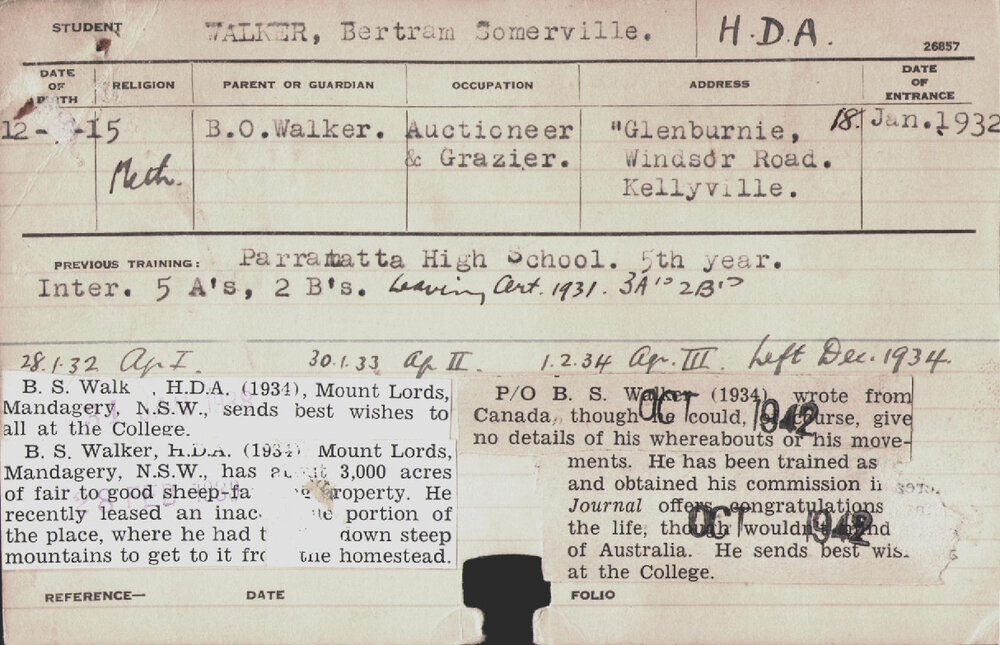 STUDENT WALKER, Bertram Somerville. H.D.A. 26857
DATE OF BIRTH RELIGION PARENT OR GUARDIAN OCCUPATION ADDRESS DATE OF ENTRANCE
12- -15 Meth. B.O.Walker. Auctioneer "Glenburnie, 18. Jan. 1932
& Grazier. Windsor Road.
Kellyville.
PREVIOUS TRAINING: Parramatta High School. 5th year.
Inter. 5 A's, 2 B's. Leaving Cert. 1931. 3A's 2B's
28.1.32 Ag I. 30.1.33 Ag II. 1.2.34 Ag. III. Left Dec. 1934.
B. S. Walk H.D.A. (1934), Mount Lords,
Mandagery, N.S.W., sends best wishes to
all at the College.
B. S. Walker, H.D.A. (1934) Mount Lords,
Mandagery, N.S.W., has 3,000 acres
of fair to good sheep-fa property. He
recently leased an inac portion of
the place, where he had t down steep
mountains to get to it fro the homestead.
P/O B. S. Walker (1934) wrote from
Canada, though he could, course, give
no details of his whereabouts or his move-
ments. He has been trained as
and obtained his commission i
Journal offers congratulations
the life, though wouldn't mind
of Australia. He sends best wis
at the College.
OCT 1942
OCT 1942
REFERENCE— DATE FOLIO